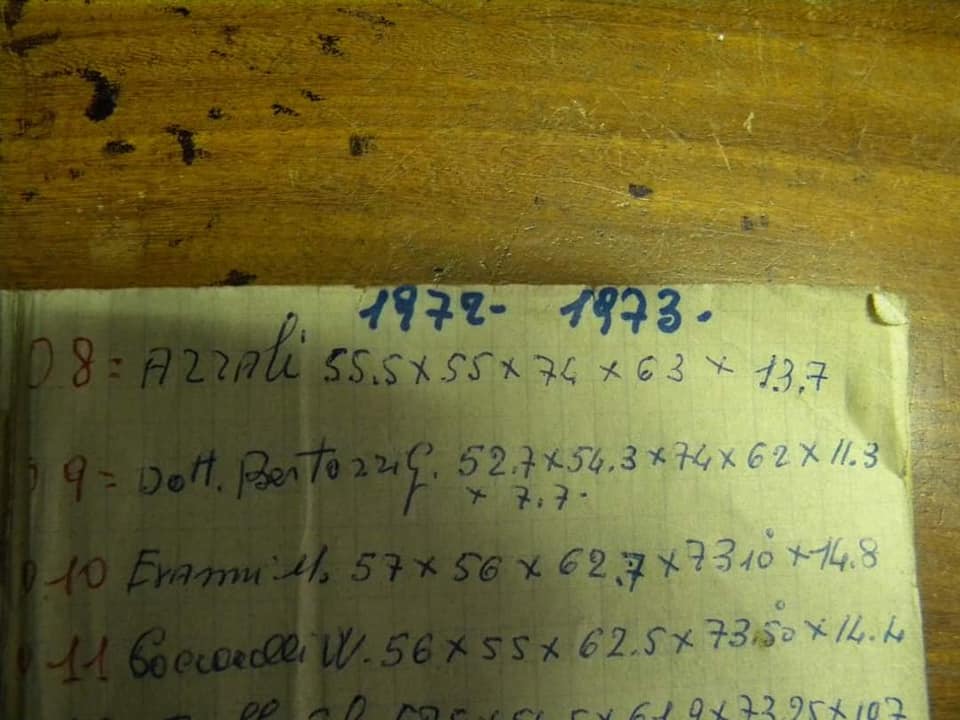 1972- 1973.
8= AZZALi 55.5×55×74×63×13,7
9= Dott. Bertozzi G. 52.7×54.3×74×62×11.3
× 7.7.
10 M. 57×56×62.7×7310°×14.8
11 W. 56×55×62.5×73.50°×14.4